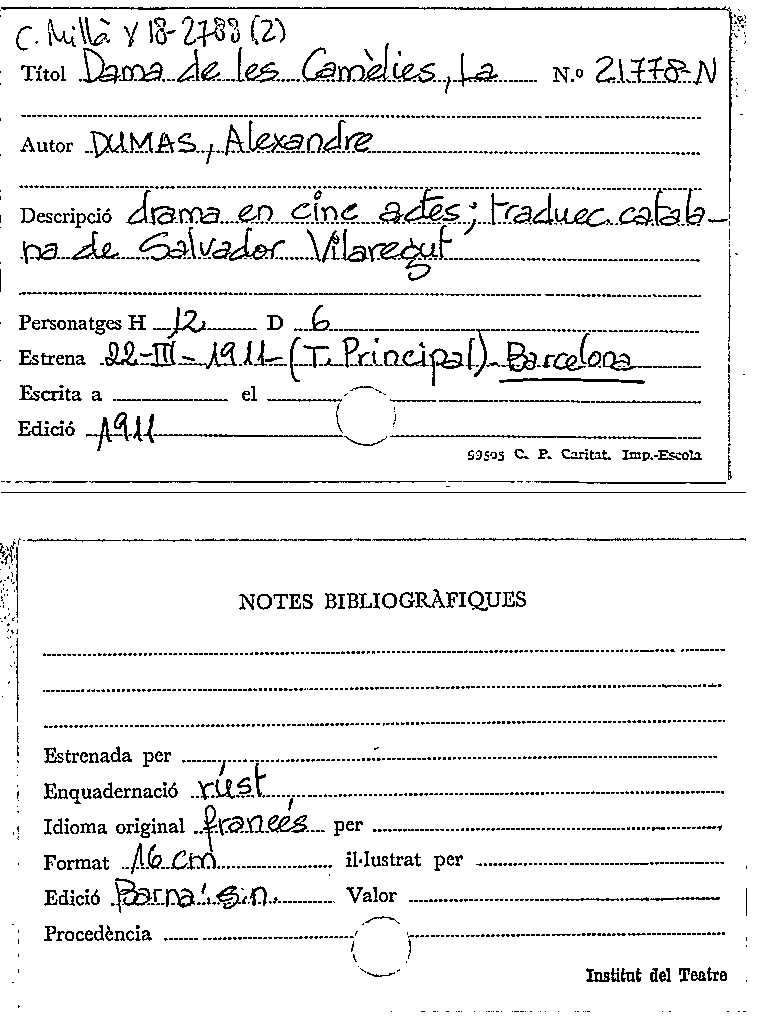 C. Millà V 18-2788 (2)
Títol Dama de les Camèlies, La N.º 21778-N
Autor DUMAS, Alexandre
Descripció drama en cinc actes; traducc. catala-
na de Salvador Vilaregut
Personatges H 12 D 6
Estrena 22-III-1911-(T. Principal). Barcelona
Escrita a el
Edició 1911
99505 C. P. Caritat. Imp.-Escola
NOTES BIBLIOGRÀFIQUES
Estrenada per
Enquadernació rúst
Idioma original francés per
Format 16 cm il·lustrat per
Edició Barna: s.n. Valor
Procedència
Institut del Teatre